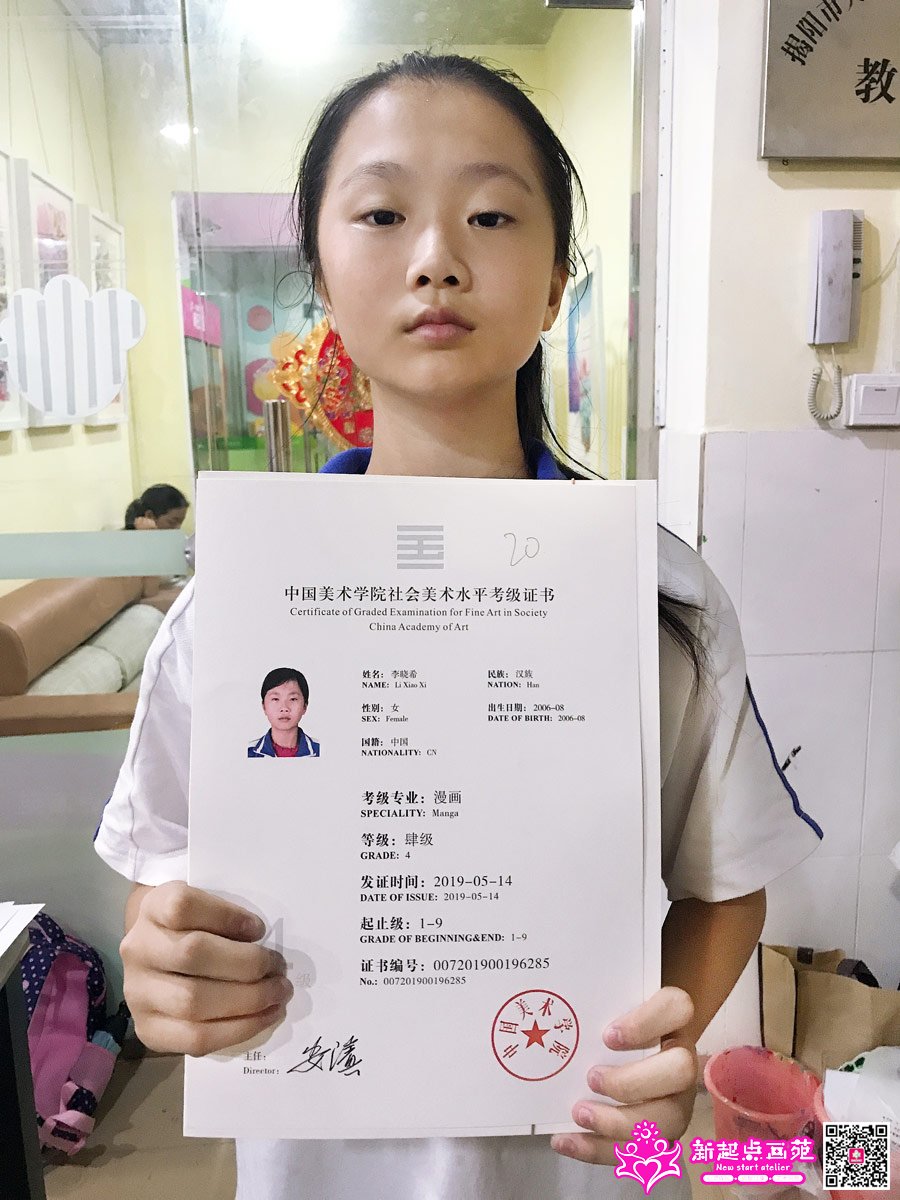 揭阳市
教
20
中国美术学院社会美术水平考级证书
Certificate of Graded Examination for Fine Art in Society
China Academy of Art
姓名: 李晓希
NAME: Li Xiao Xi
民族: 汉族
NATION: Han
性别: 女
SEX: Female
出生日期: 2006-08
DATE OF BIRTH: 2006-08
国籍: 中国
NATIONALITY: CN
考级专业: 漫画
SPECIALITY: Manga
等级: 肆级
GRADE: 4
发证时间: 2019-05-14
DATE OF ISSUE: 2019-05-14
起止级: 1-9
GRADE OF BEGINNING&END: 1-9
证书编号: 007201900196285
No.: 007201900196285
级
主任:
Director:
中国美术学院
新起点画苑
New start atelier